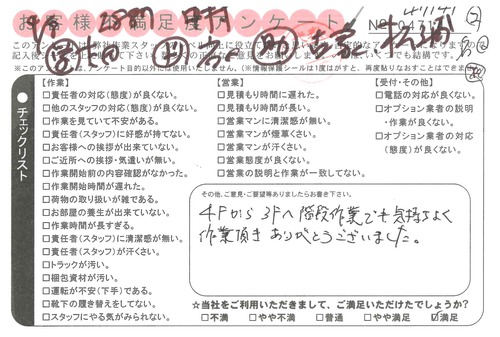 お客様の満足度アンケート
□責任者の対応(態度)が良くない。
□他のスタッフの対応(態度)が良くない。
□作業を見ていて不安がある。
□責任者(スタッフ)に好感が持てない。
□お客様への挨拶が出来ていない。
□ご近所への挨拶・気遣いが無い。
□作業開始前の内容確認がなかった。
□作業開始時間が遅れた。
□荷物の取り扱いが雑である。
□お部屋の養生が出来ていない。
□作業時間が長すぎる。
□責任者(スタッフ)に清潔感が無い。
□責任者(スタッフ)が汗くさい。
□トラックが汚い。
□梱包資材が汚い。
□運転が不安(下手)である。
□靴下の履き替えをしてない。
□スタッフにやる気がみられない。
【作業】
チェックリスト
【営業】
□見積もり時間に遅れた。
□見積もり時間が長い。
□営業マンに清潔感が無い。
□営業マンが煙草くさい。
□営業マンが汗くさい。
□営業態度が良くない。
□営業の説明と作業が一致してない。
【受付・その他】
□電話の対応が良くない。
□オプション業者の説明
・作業が良くない。
□オプション業者の対応
(態度)が良くない。
その他、ご意見・ご要望等ありましたらお書き下さい。
4Fから3Fへ階段作業でも気持ちよく
作業頂きありがとうございました。
☆当社をご利用いただきまして、ご満足いただけたでしょうか?
□不満 □やや不満 □普通 □やや満足 ☑満足